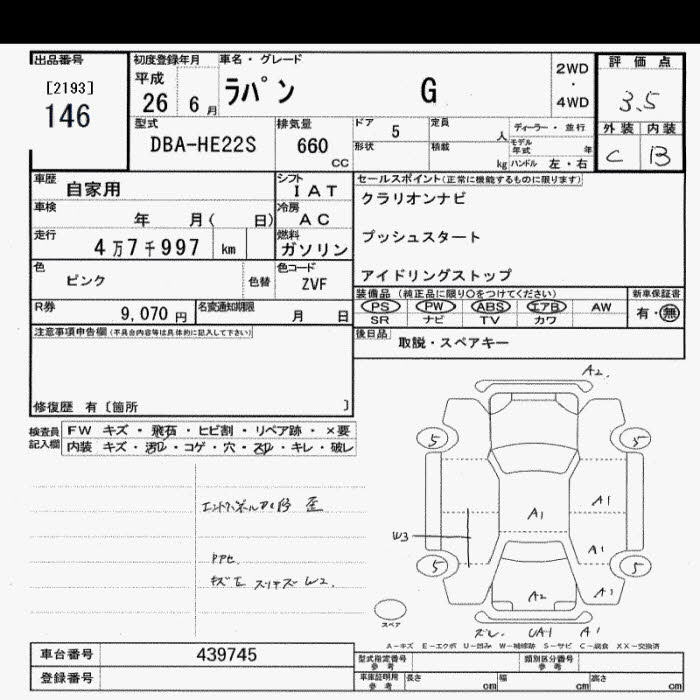 出品番号
[2193]
146
初度登録年月
平成
26 6月
車名・グレード
ラパン G
2WD
・
4WD
評価点
3.5
外装 内装
C B
型式
DBA-HE22S
排気量
660
CC
ドア
5
定員
人
形状
積載
kg
ディーラー・並行
モデル年式 年
ハンドル 左・右
車歴
自家用
シフト
IAT
車検
年 月( 日)
冷房
AC
走行
4万7千997 km
燃料
ガソリン
色
ピンク
色替
色コード
ZVF
R券
9,070円
名変通知期限
月 日
セールスポイント(正常に機能するものに限ります)
クラリオンナビ
プッシュスタート
アイドリングストップ
装備品(純正品に限り○をつけてください)
PS PW ABS エアB AW
SR ナビ TV カワ
新車保証書
有・無
後日品
取説・スペアキー
注意事項申告欄(不具合内容等は具体的に記入して下さい)
修復歴 有〔箇所 〕
検査員
記入欄
FW キズ・飛石・ヒビ割・リペア跡・×要
内装 キズ・汚れ・コゲ・穴・スレ・キレ・破レ
歪
W2.
A2.
5 5
A1 A1
W3
A1
5 5
A2 A1
ズレ UA1 A1
スペア
A-キズ E-エクボ U-凹み W-補修跡 S-サビ C-腐食 XX-交換済
車台番号
439745
登録番号
型式指定番号
参考
類別区分番号
参考
車庫証明用
参考
長さ cm 幅 cm 高さ cm